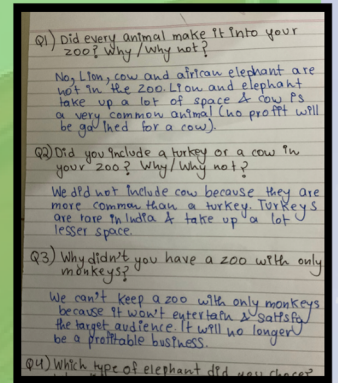 Q1) Did every animal make it into your
zoo? Why / Why not?
No, Lion, cow and airican elephant are
not in the zoo. Lion and elephant
take up a lot of space & cow is
a very common animal (no profit will
be gained for a cow).
Q2) Did you include a turkey or a cow in
your zoo? Why / Why not?
We did not include cow because they are
more common than a turkey. Turkeys
are rare in India & take up a lot
lesser space.
Q3) Why didn't you have a zoo with only
monkeys?
We can't keep a zoo with only monkeys
because it won't entertain & satisfy
the target audience. It will no longer
be a profitable business.
Q4) Which type of elephant did you